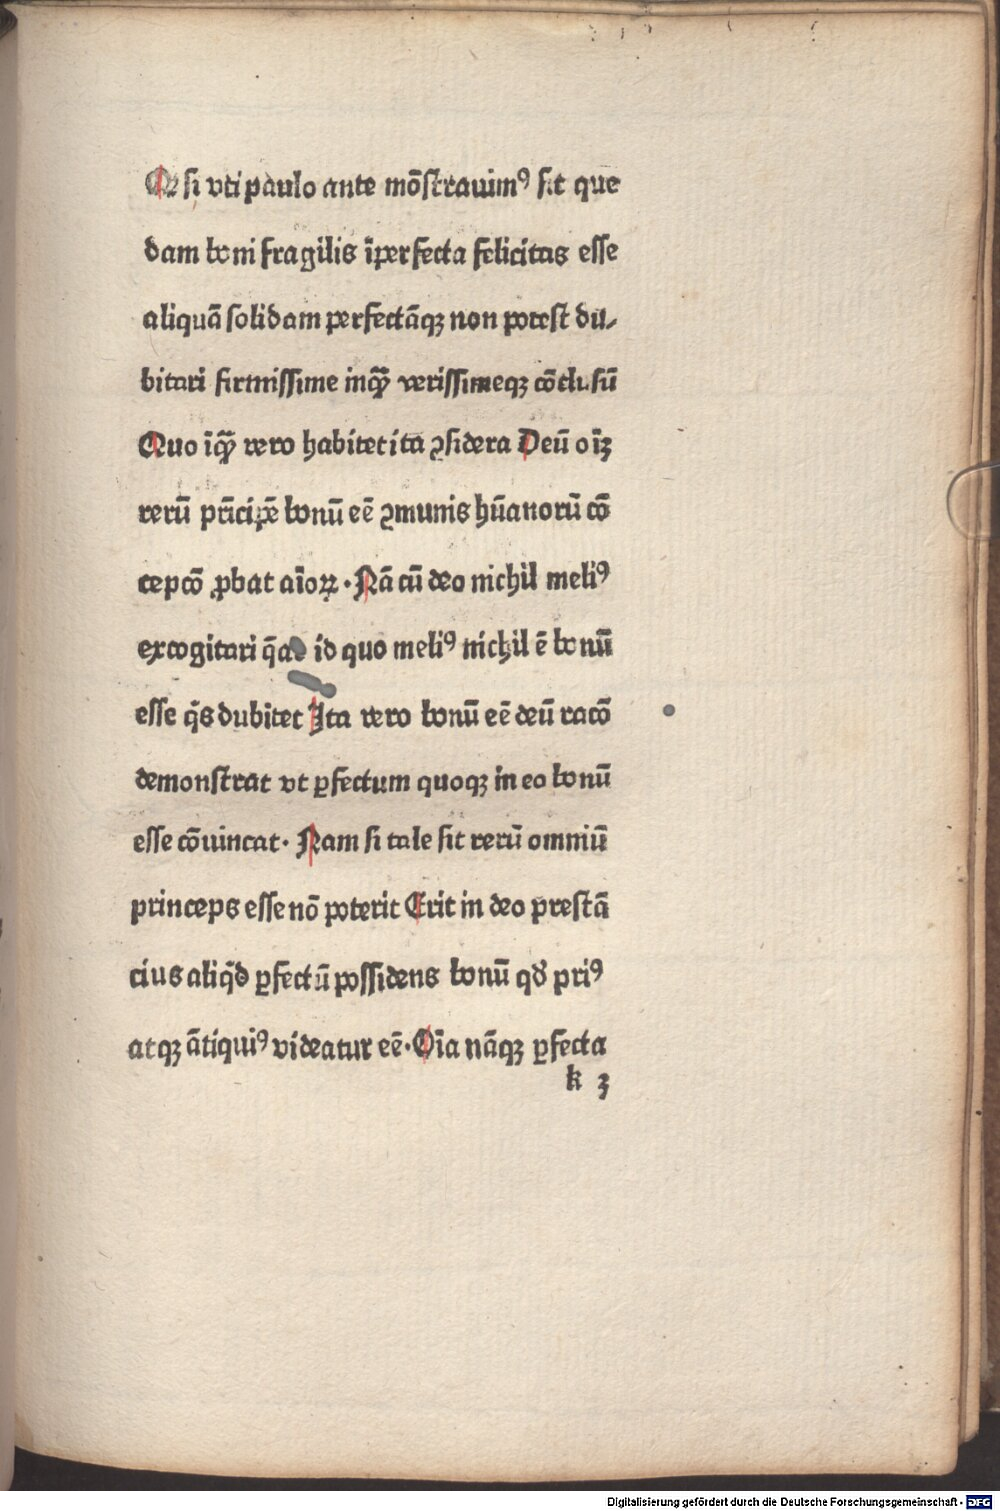 Qꝙ si vti paulo ante mo̅strauimꝰ sit que
dam boni fragilis i̅perfecta felicitas esse
aliqua̅ solidam perfecta̅qꝫ non potest du⸗
bitari firmissime inqua̅ verissimeqꝫ co̅clusu̅
Quo i̅qua̅ vero habitet ita ꝯsidera Deu̅ oi̅ꝫ
reru̅ pri̅cipe̅ bonu̅ ee̅ ꝯmunis hu̅anoru̅ co̅
cepco̅ ꝓbat ai̅oꝝ · Na̅ cu̅ deo nichil meliꝰ
excogitari q̅at id quo meliꝰ nichil e̅ bonu̅
esse q̅s dubitet Ita vero bonu̅ ee̅ deu̅ raco̅
demonstrat vt ꝑfectum quoqꝫ in eo bonu̅
esse co̅uincat · Nam si tale sit reru̅ omniu̅
princeps esse no̅ poterit Erit in deo presta̅
cius aliq̅d ꝑfectu̅ possidens bonu̅ qđ priꝰ
atqꝫ a̅tiquiꝰ videatur ee̅ · Oi̅a na̅qꝫ ꝑfecta
k 3
Digitalisierung gefördert durch die Deutsche Forschungsgemeinschaft - DFG